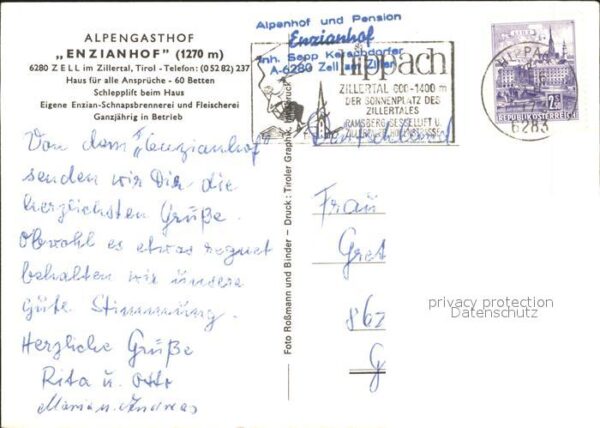 ALPENGASTHOF
„ENZIANHOF" (1270 m)
6280 ZELL im Zillertal, Tirol - Telefon: (0 52 82) 237
Haus für alle Ansprüche - 60 Betten
Schlepplift beim Haus
Eigene Enzian-Schnapsbrennerei und Fleischerei
Ganzjährig in Betrieb
Alpenhof und Pension
Enzianhof
Inh. Sepp Kerschdorfer
A-6280 Zell am Ziller
Hippach
ZILLERTAL 600-1400 m
DER SONNENPLATZ DES
ZILLERTALES
RAMSBERG SESSELLIFT U.
6283
REPUBLIK ÖSTERREICH
Von dem "Enzianhof
senden wir Dir die
herzlichsten Grüße.
Obwohl es etwas regnet
behalten wir unsere
gute Stimmung.
Herzliche Grüße
Rita u. Otto
Maria u. Andreas
Foto Roßmann und Binder - Druck: Tiroler Graphik, Innsbruck
Deutschland
Frau
Gret
862
G
privacy protection
Datenschutz